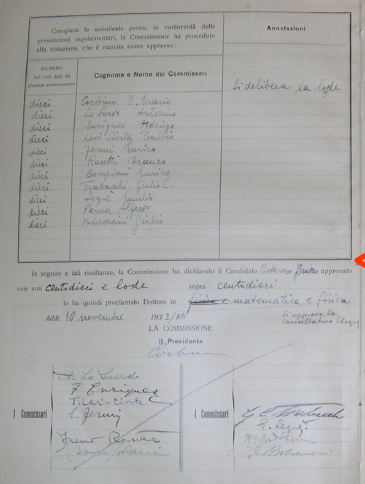 Compiute le suindicate prove, in conformità delle
prescrizioni regolamentari, la Commissione ha proceduto
alla votazione, che è riuscita come appresso:
Annotazioni
NUMERO
dei voti dati da
ciascun commissario
Cognome e Nome dei Commissari
Si delibera la lode
dieci Corbino O. Mario
dieci Lo Surdo Antonino
dieci Enriques Federigo
dieci Levi Civita Tullio
dieci Fermi Enrico
dieci Rasetti Franco
dieci Bompiani Enrico
dieci Trabacchi Giulio C.
dieci Segrè Emilio
dieci Perna Alfredo
dieci Giulio
In seguito a tali risultanze, la Commissione ha dichiarato il Candidato approvato
con voti centodieci e lode sopra centodieci
lo ha quindi proclamato Dottore in fisica e matematica e fisica
Addì 10 novembre 193
Si approva la
cancellatura
LA COMMISSIONE
Il Presidente
Corbino
A. Lo Surdo
F. Enriques
T. Levi-Civita
E. Fermi
I Commissari
I Commissari
E. Segrè
Franco Rasetti